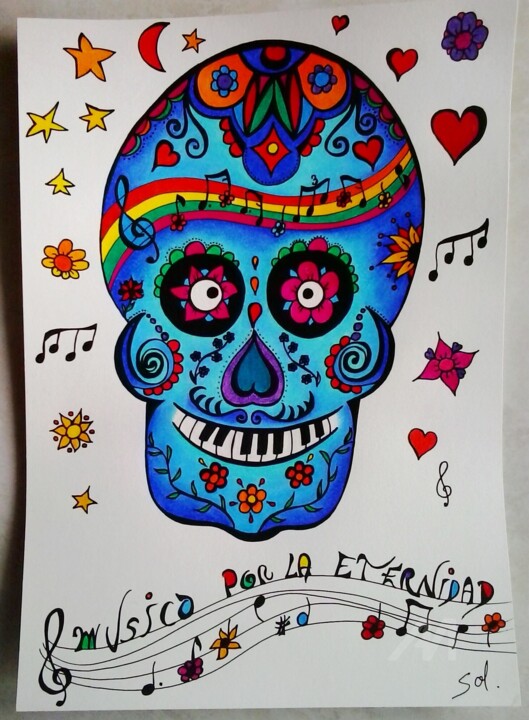 MUSICA POR LA ETERNIDAD
3
Sol.